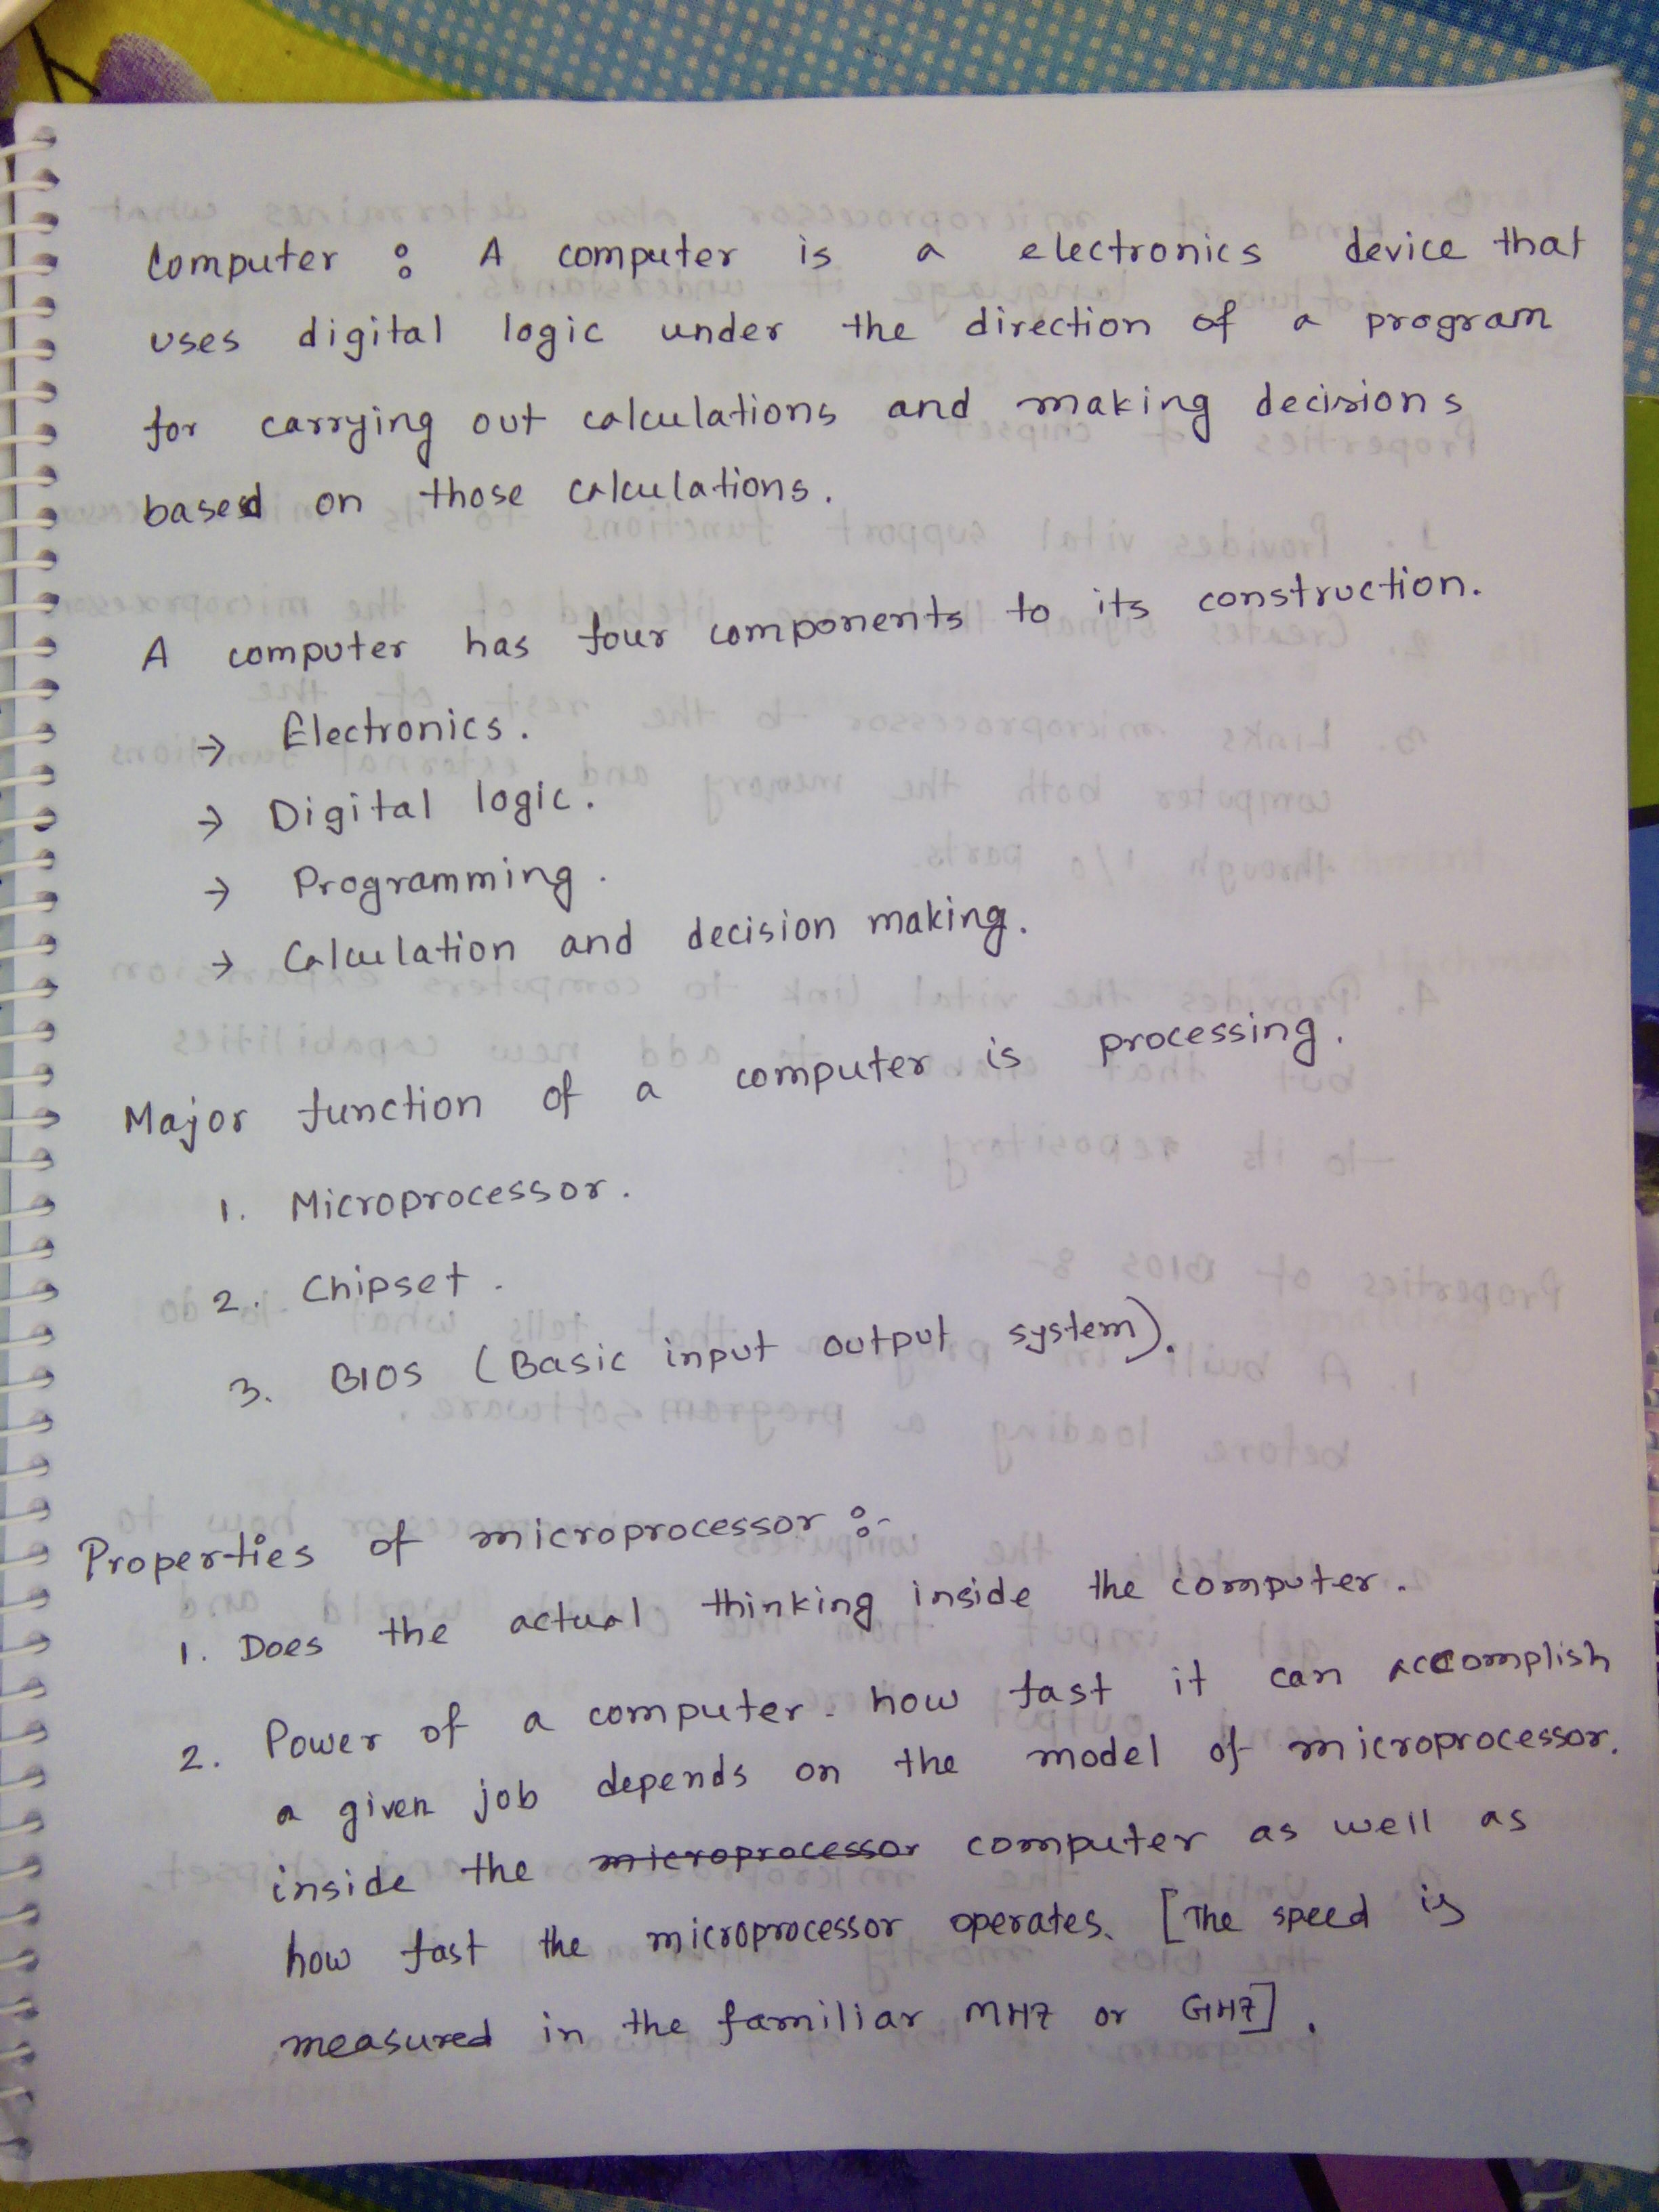 Computer : A computer is a electronics device that
uses digital logic under the direction of a program
for carrying out calculations and making decisions
based on those calculations.
A computer has four components to its construction.
→ Electronics.
→ Digital logic.
→ Programming.
→ Calculation and decision making.
Major function of a computer is processing.
1. Microprocessor.
2. Chipset.
3. BIOS (Basic input output system).
Properties of microprocessor :-
1. Does the actual thinking inside the computer.
2. Power of a computer. how fast it can accomplish
a given job depends on the model of microprocessor.
inside the microprocessor computer as well as
how fast the microprocessor operates. [The speed is
measured in the familiar MHZ or GHZ].